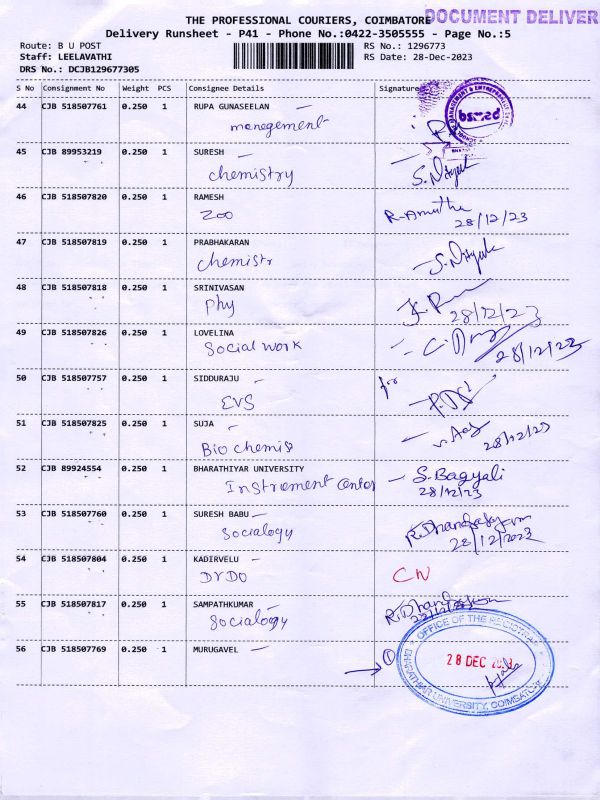 THE PROFESSIONAL COURIERS, COIMBATORE
DOCUMENT DELIVER
Delivery Runsheet - P41 - Phone No.:0422-3505555 - Page No.:5
Route: B U POST
RS No.: 1296773
Staff: LEELAVATHI
RS Date: 28-Dec-2023
DRS No.: DCJB129677305
S No Consignment No Weight PCS Consignee Details Signature
44 CJB 518507761 0.250 1 RUPA GUNASEELAN
management
45 CJB 89953219 0.250 1 SURESH
chemistry
46 CJB 518507820 0.250 1 RAMESH
Zoo R. Amutha
28/12/23
47 CJB 518507819 0.250 1 PRABHAKARAN
chemistr
48 CJB 518507818 0.250 1 SRINIVASAN
Phy 28/12/23
49 CJB 518507826 0.250 1 LOVELINA
Social work 28/12/23
50 CJB 518507757 0.250 1 SIDDURAJU for
EVS
51 CJB 518507825 0.250 1 SUJA
Bio chemis 28/12/23
52 CJB 89924554 0.250 1 BHARATHIYAR UNIVERSITY S. Bagyali
Instrument Center 28/12/23
53 CJB 518507760 0.250 1 SURESH BABU
Socialogy 28/12/2023
54 CJB 518507804 0.250 1 KADIRVELU
DRDO CN
55 CJB 518507817 0.250 1 SAMPATHKUMAR
Socialogy
56 CJB 518507769 0.250 1 MURUGAVEL 1
OFFICE OF THE REGISTRAR
28 DEC 2023
BHARATHIAR UNIVERSITY, COIMBATORE